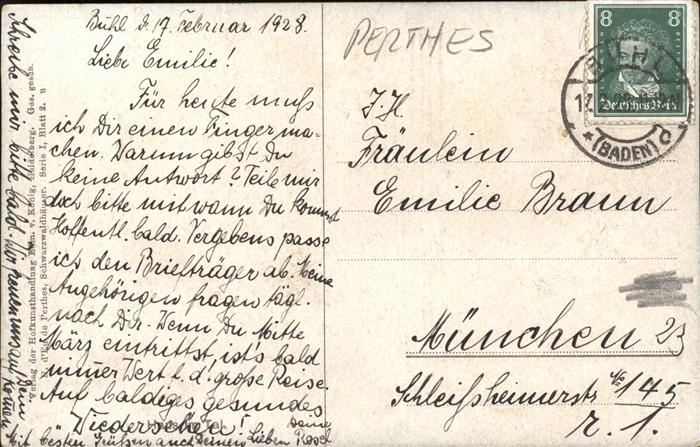 Bühl d. 17. Februar 1928.
Liebe Emilie!
Für heute muss
ich Dir einen Finger ma-
chen. Warum gibst Du
keine Antwort? Teile mir
doch bitte mit wann Du kommst
Hoffentl. bald. Vergebens passe
ich den Briefträger ab. Meine
Angehörigen fragen tägl.
nach Dir. Wenn Du Mitte
März eintriffst, ist's bald
immer Wert f. d. große Reise.
Auf baldiges gesundes
Wiedersehen! Deine
Mit besten Grüßen auch Deinen Lieben Rosel
Schreibe mir bitte bald. Wir freuen uns auf Dein
Kommen
Verlag der Hofkunsthandlung Edm. v. König, Heidelberg. Ges. gesch.
N. d'Es de Perthes, Schwarzwaldhäuser, Serie I, Blatt 2. u
PERTHES
8 8
Deutsches Reich
BÜHL
17.
(BADEN)
J. H.
Fräulein
Emilie Braun
München 23
Schleißheimerstr 145
r. 1.